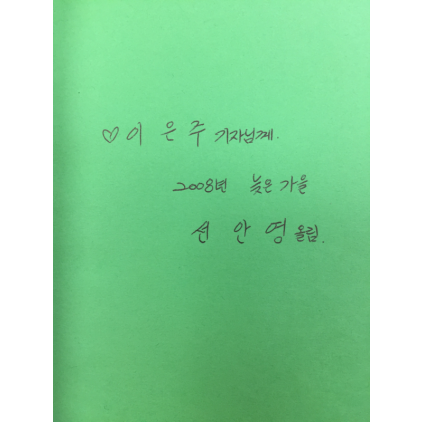 ♡ 이 은 주 기자님께.
2008년 늦은 가을
선 안 영 올림.